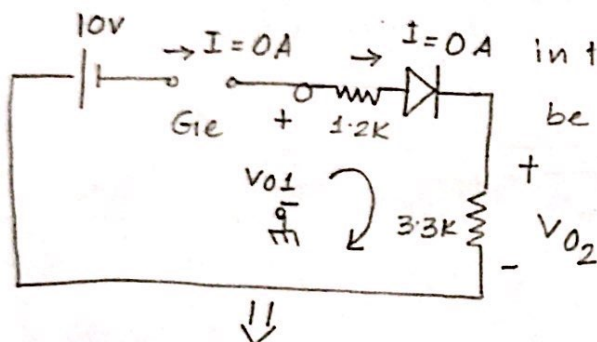 10V
→ I = 0A → I = 0A in t
Ge + 1.2K be
+
V01
-
3.3K VO2
-
⇓